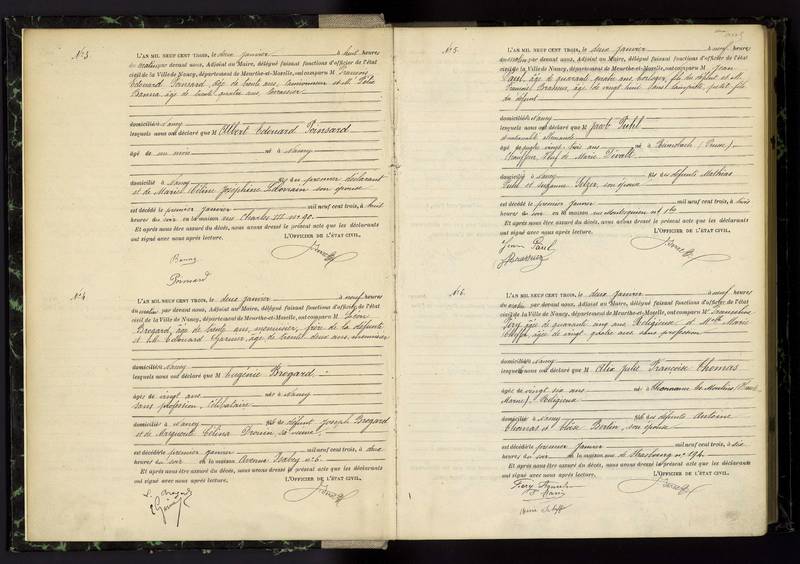 N° 3.
L'AN MIL NEUF CENT TROIS, le deux janvier à huit heures
du matin par devant nous, Adjoint au Maire, délégué faisant fonctions d'officier de l'état
civil de la Ville de Nancy, département de Meurthe-et-Moselle, ont comparu M François
Edouard Poinsard, âgé de trente ans, et M
âgé de trente quatre ans, brossier
domiciliés à Nancy
lesquels nous ont déclaré que M Albert Edouard Poinsard
âgé de un mois né à Nancy
domicilié à Nancy fils du premier déclarant
et de Marie Céline Joséphine son épouse
est décédé le premier janvier mil neuf cent trois, à huit
heures du soir en la maison rue Charles III n° 90.
Et après nous être assuré du décès, nous avons dressé le présent acte que les déclarants
ont signé avec nous après lecture. L'OFFICIER DE L'ÉTAT CIVIL,
Poinsard
N° 4
L'AN MIL NEUF CENT TROIS, le deux janvier à neuf heures
du matin par devant nous, Adjoint au Maire, délégué faisant fonctions d'officier de l'état
civil de la Ville de Nancy, département de Meurthe-et-Moselle, ont comparu M Léon
Brogard, âgé de trente ans, menuisier, frère de la défunte
et M. Edouard Garnier, âgé de trente deux ans, menuisier
domiciliés à Nancy
lesquels nous ont déclaré que M Eugénie Brogard
âgée de vingt ans née à Nancy
sans profession, célibataire
domiciliée à Nancy fille de défunt Joseph Brogard
et de Marguerite Célina Drouin, sa veuve
est décédée le premier janvier mil neuf cent trois, à deux
heures du soir en la maison Avenue n° 6.
Et après nous être assuré du décès, nous avons dressé le présent acte que les déclarants
ont signé avec nous après lecture. L'OFFICIER DE L'ÉTAT CIVIL,
N° 5.
L'AN MIL NEUF CENT TROIS, le deux janvier à neuf heures
du matin par devant nous, Adjoint au Maire, délégué faisant fonctions d'officier de l'état
civil de la Ville de Nancy, département de Meurthe-et-Moselle, ont comparu M Jean
Paul, âgé de quarante quatre ans, horloger, fils du défunt et M.
âgé de vingt huit ans, petit fils
du défunt
domiciliés à Nancy
lesquels nous ont déclaré que M Jacob
de nationalité allemande
âgé de quatre vingt trois ans né à (Prusse).
veuf de Marie
domicilié à Nancy fils de défunts Mathias
et Suzanne son épouse
est décédé le premier janvier mil neuf cent trois, à huit
heures du soir en la maison rue
Et après nous être assuré du décès, nous avons dressé le présent acte que les déclarants
ont signé avec nous après lecture. L'OFFICIER DE L'ÉTAT CIVIL,
Jean Paul
N° 6.
L'AN MIL NEUF CENT TROIS, le deux janvier à neuf heures
du matin par devant nous, Adjoint au Maire, délégué faisant fonctions d'officier de l'état
civil de la Ville de Nancy, département de Meurthe-et-Moselle, ont comparu M
âgé de quarante cinq ans, Religieuse et Marie
âgée de vingt quatre ans sans profession
domiciliés à Nancy
lesquels nous ont déclaré que M Alix Julie Françoise Thomas
âgée de vingt six ans née à
Marne), Religieuse
domiciliée à Nancy fille de défunts Antoine
Thomas et Elisa Berlin, son épouse
est décédée le premier janvier mil neuf cent trois, à dix
heures du soir en la maison rue de Strasbourg n° 194.
Et après nous être assuré du décès, nous avons dressé le présent acte que les déclarants
ont signé avec nous après lecture. L'OFFICIER DE L'ÉTAT CIVIL,